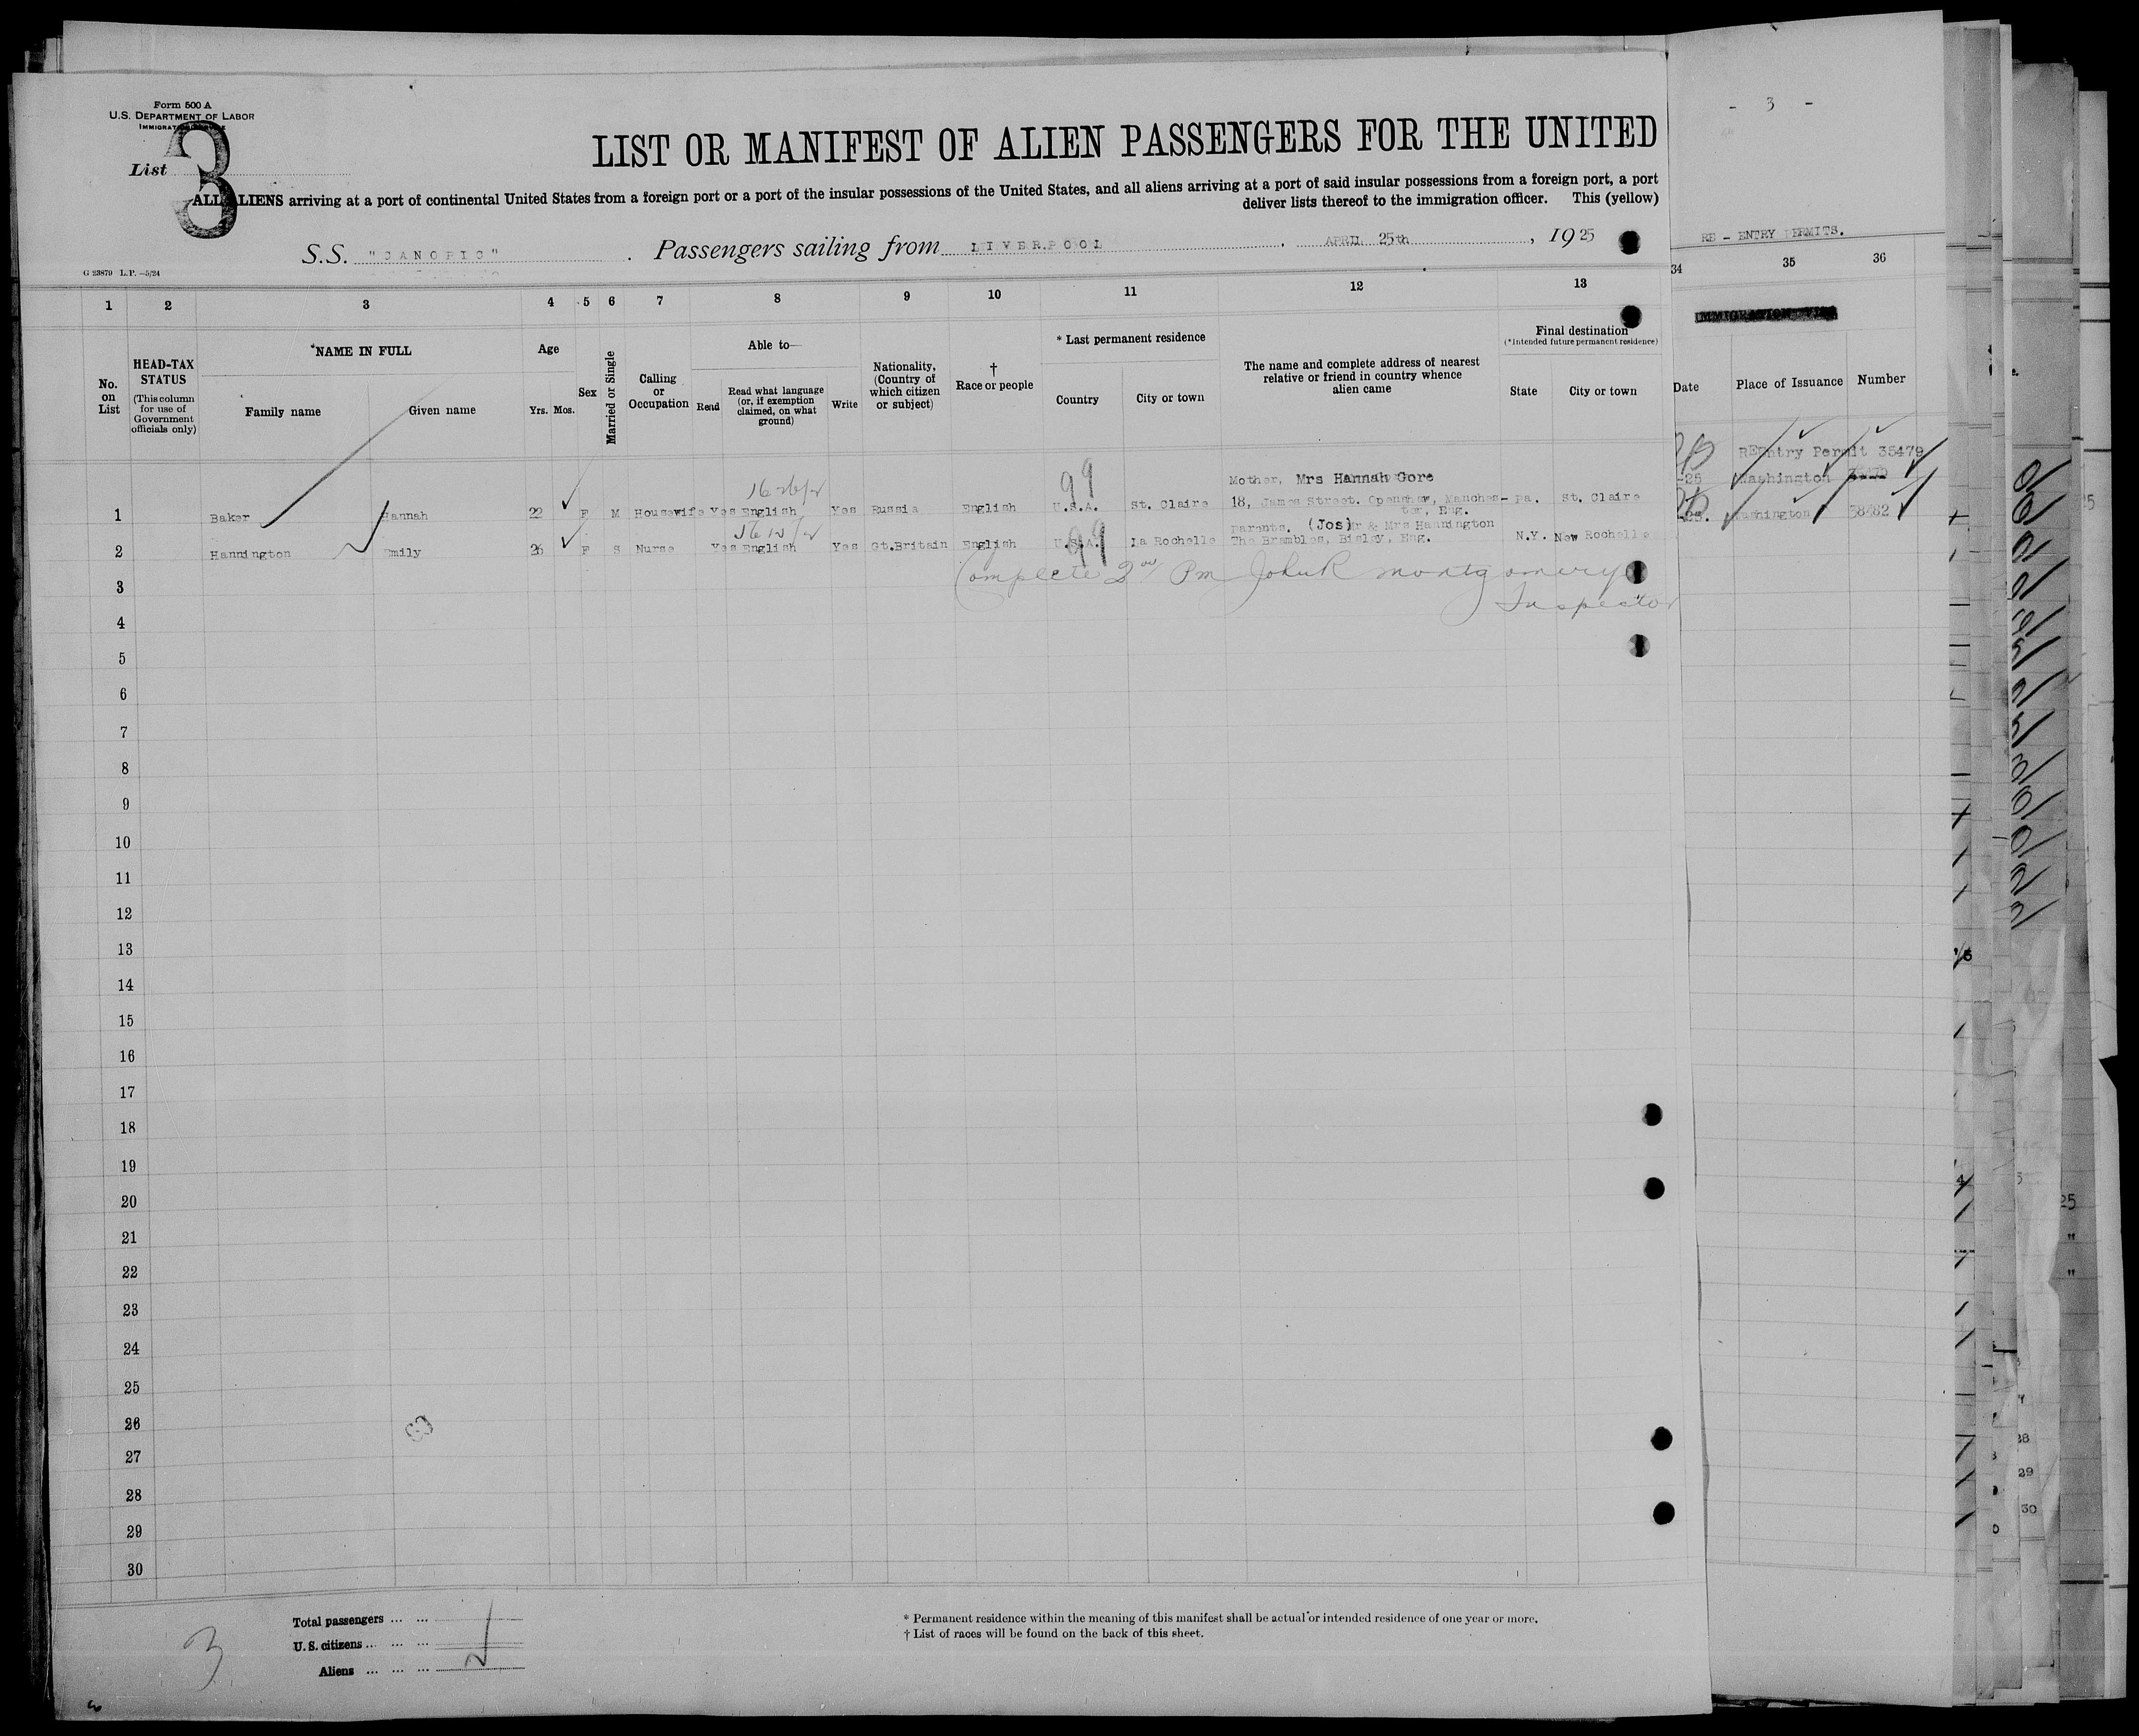 Form 500 A
U.S. DEPARTMENT OF LABOR
List 3
LIST OR MANIFEST OF ALIEN PASSENGERS FOR THE UNITED
ALL ALIENS arriving at a port of continental United States from a foreign port or a port of the insular possessions of the United States, and all aliens arriving at a port of said insular possessions from a foreign port, a port
deliver lists thereof to the immigration officer. This (yellow)
S.S. "CANOPIC" . Passengers sailing from LIVERPOOL . APRIL 25th , 19 25
G 23879 L.P.—5/24
1 2 3 4 5 6 7 8 9 10 11 12 13
No. on List
HEAD-TAX STATUS (This column for use of Government officials only)
*NAME IN FULL
Family name
Given name
Age
Yrs. Mos.
Sex
Married or Single
Calling or Occupation
Able to—
Read
Read what language (or, if exemption claimed, on what ground)
Write
Nationality, (Country of which citizen or subject)
† Race or people
* Last permanent residence
Country
City or town
The name and complete address of nearest relative or friend in country whence alien came
Final destination
(*Intended future permanent residence)
State
City or town
1 Baker Hannah 22 F M Housewife Yes English Yes Russia English U.S.A. St. Claire Mother, Mrs Hannah Gore
18, James Street. Openshaw, Manches-
ter, Eng. Pa. St. Claire
99
2 Hannington Emily 26 F S Nurse Yes English Yes Gt.Britain English U.S.A. La Rochelle parents, (Jos) Mr & Mrs Hannington
The Brambles, Bisley, Eng. N.Y. New Rochelle
99
Complete Pm John R Montgomery
Inspector
3
4
5
6
7
8
9
10
11
12
13
14
15
16
17
18
19
20
21
22
23
24
25
26
27
28
29
30
Total passengers ... ...
U. S. citizens ... ... ...
Aliens ... ... ...
3
* Permanent residence within the meaning of this manifest shall be actual or intended residence of one year or more.
† List of races will be found on the back of this sheet.
- 3 -
RE - ENTRY PERMITS.
34 35 36
Date
Place of Issuance
Number
REEntry Permit 35479
-25 Washington
-25. Washington 38482
25
"
"
29
30